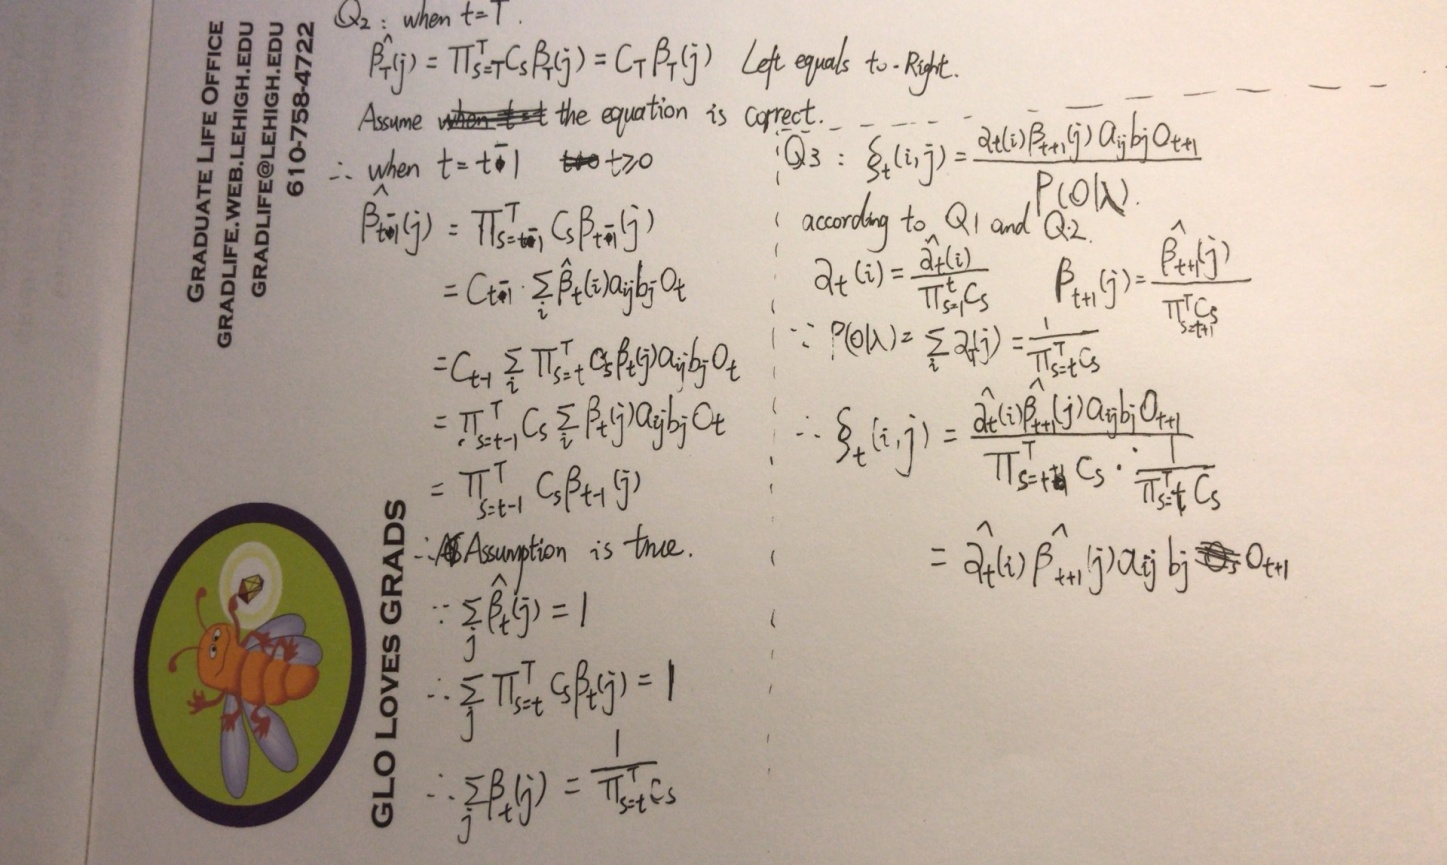 GRADUATE LIFE OFFICE
GRADLIFE.WEB.LEHIGH.EDU
GRADLIFE@LEHIGH.EDU
610-758-4722
GLO LOVES GRADS
Q2 : when t=T.
β̂_T(j) = Π_{s=T}^T C_s β_T(j) = C_T β_T(j) Left equals to Right.
Assume the equation is correct.
∴ when t = t-1 t≥0
β̂_{t-1}(j) = Π_{s=t-1}^T C_s β_{t-1}(j)
= C_{t-1} · Σ_i β̂_t(i) a_ij b_j O_t
= C_{t-1} Σ_i Π_{s=t}^T C_s β_t(j) a_ij b_j O_t
= Π_{s=t-1}^T C_s Σ_i β_t(j) a_ij b_j O_t
= Π_{s=t-1}^T C_s β_{t-1}(j)
∴ Assumption is true.
∵ Σ_j β̂_t(j) = 1
∴ Σ_j Π_{s=t}^T C_s β_t(j) = 1
∴ Σ_j β_t(j) = 1 / Π_{s=t}^T C_s
Q3 : ξ_t(i,j) = α_t(i) β_{t+1}(j) a_ij b_j O_{t+1} / P(O|λ).
according to Q1 and Q2.
α_t(i) = α̂_t(i) / Π_{s=1}^t C_s β_{t+1}(j) = β̂_{t+1}(j) / Π_{s=t+1}^T C_s
∵ P(O|λ) = Σ_i α_T(j) = 1 / Π_{s=t}^T C_s
∴ ξ_t(i,j) = α̂_t(i) β̂_{t+1}(j) a_ij b_j O_{t+1} / Π_{s=t}^T C_s · 1 / Π_{s=t}^T C_s
= α̂_t(i) β̂_{t+1}(j) a_ij b_j O_{t+1}